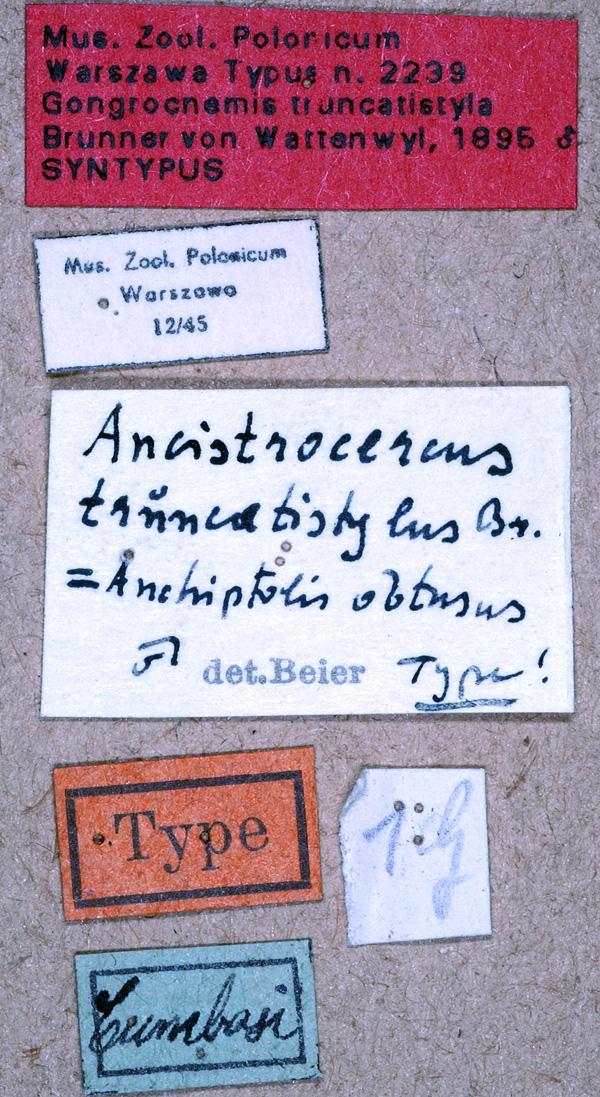 Mus. Zool. Polonicum
Warszawa Typus n. 2239
Gongrocnemis truncatistyla
Brunner von Wattenwyl, 1895 ♂
SYNTYPUS
Mus. Zool. Polonicum
Warszawa
12/45
Ancistrocercus
trŭncatistylus Br.
= Anchiptolis obtusus
♂ det. Beier Type!
Type
Cumbasi